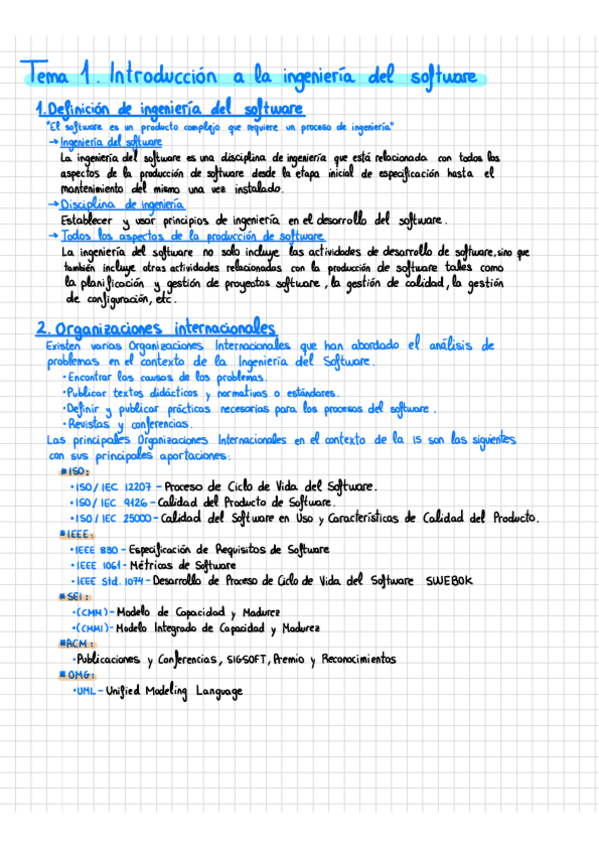 Tema 1. Introducción a la ingeniería del software
1. Definición de ingeniería del software
"El software es un producto complejo que requiere un proceso de ingeniería"
→ Ingeniería del software
La ingeniería del software es una disciplina de ingeniería que está relacionada con todos los
aspectos de la producción de software desde la etapa inicial de especificación hasta el
mantenimiento del mismo una vez instalado.
→ Disciplina de ingeniería
Establecer y usar principios de ingeniería en el desarrollo del software.
→ Todos los aspectos de la producción de software
La ingeniería del software no solo incluye las actividades de desarrollo de software, sino que
también incluye otras actividades relacionadas con la producción de software tales como
la planificación y gestión de proyectos software, la gestión de calidad, la gestión
de configuración, etc.
2. Organizaciones internacionales
Existen varias Organizaciones Internacionales que han abordado el análisis de
problemas en el contexto de la Ingeniería del Software.
· Encontrar las causas de los problemas.
· Publicar textos didácticos y normativas o estándares.
· Definir y publicar prácticas necesarias para los procesos del software.
· Revistas y conferencias.
Las principales Organizaciones Internacionales en el contexto de la IS son las siguientes
con sus principales aportaciones:
■ ISO:
· ISO/IEC 12207 - Proceso de Ciclo de Vida del Software.
· ISO/IEC 9126 - Calidad del Producto de Software.
· ISO/IEC 25000 - Calidad del Software en Uso y Características de Calidad del Producto.
■ IEEE:
· IEEE 830 - Especificación de Requisitos de Software
· IEEE 1061 - Métricas de Software
· IEEE Std. 1074 - Desarrollo de Proceso de Ciclo de Vida del Software SWEBOK
■ SEI:
· (CMM) - Modelo de Capacidad y Madurez
· (CMMI) - Modelo Integrado de Capacidad y Madurez
■ ACM:
· Publicaciones y Conferencias, SIGSOFT, Premio y Reconocimientos
■ OMG:
· UML - Unified Modeling Language